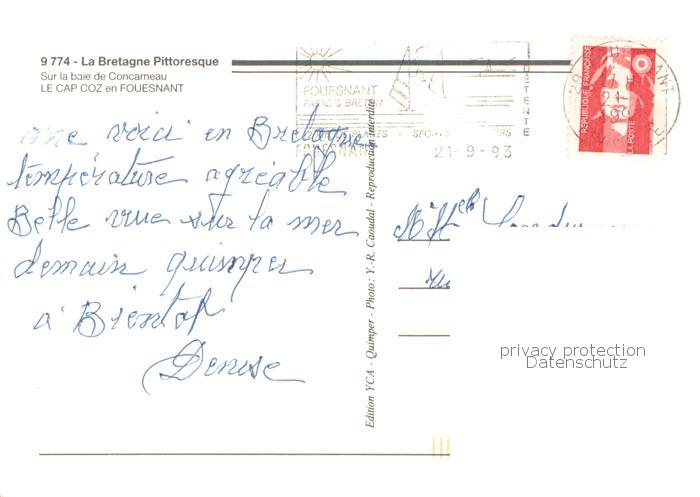 9 774 - La Bretagne Pittoresque
Sur la baie de Concarneau
LE CAP COZ en FOUESNANT
FOUESNANT
PARADIS BRETON
DÉTENTE
SPORTS
FOUESNANT
21-9-93
RÉPUBLIQUE FRANÇAISE
LA POSTE
me voici en Bretagne
température agréable
Belle vue sur la mer
demain quimper
a Bientot
Denise
Edition YCA - Quimper - Photo : Y.-R. Caoudal - Reproduction interdite
privacy protection
Datenschutz